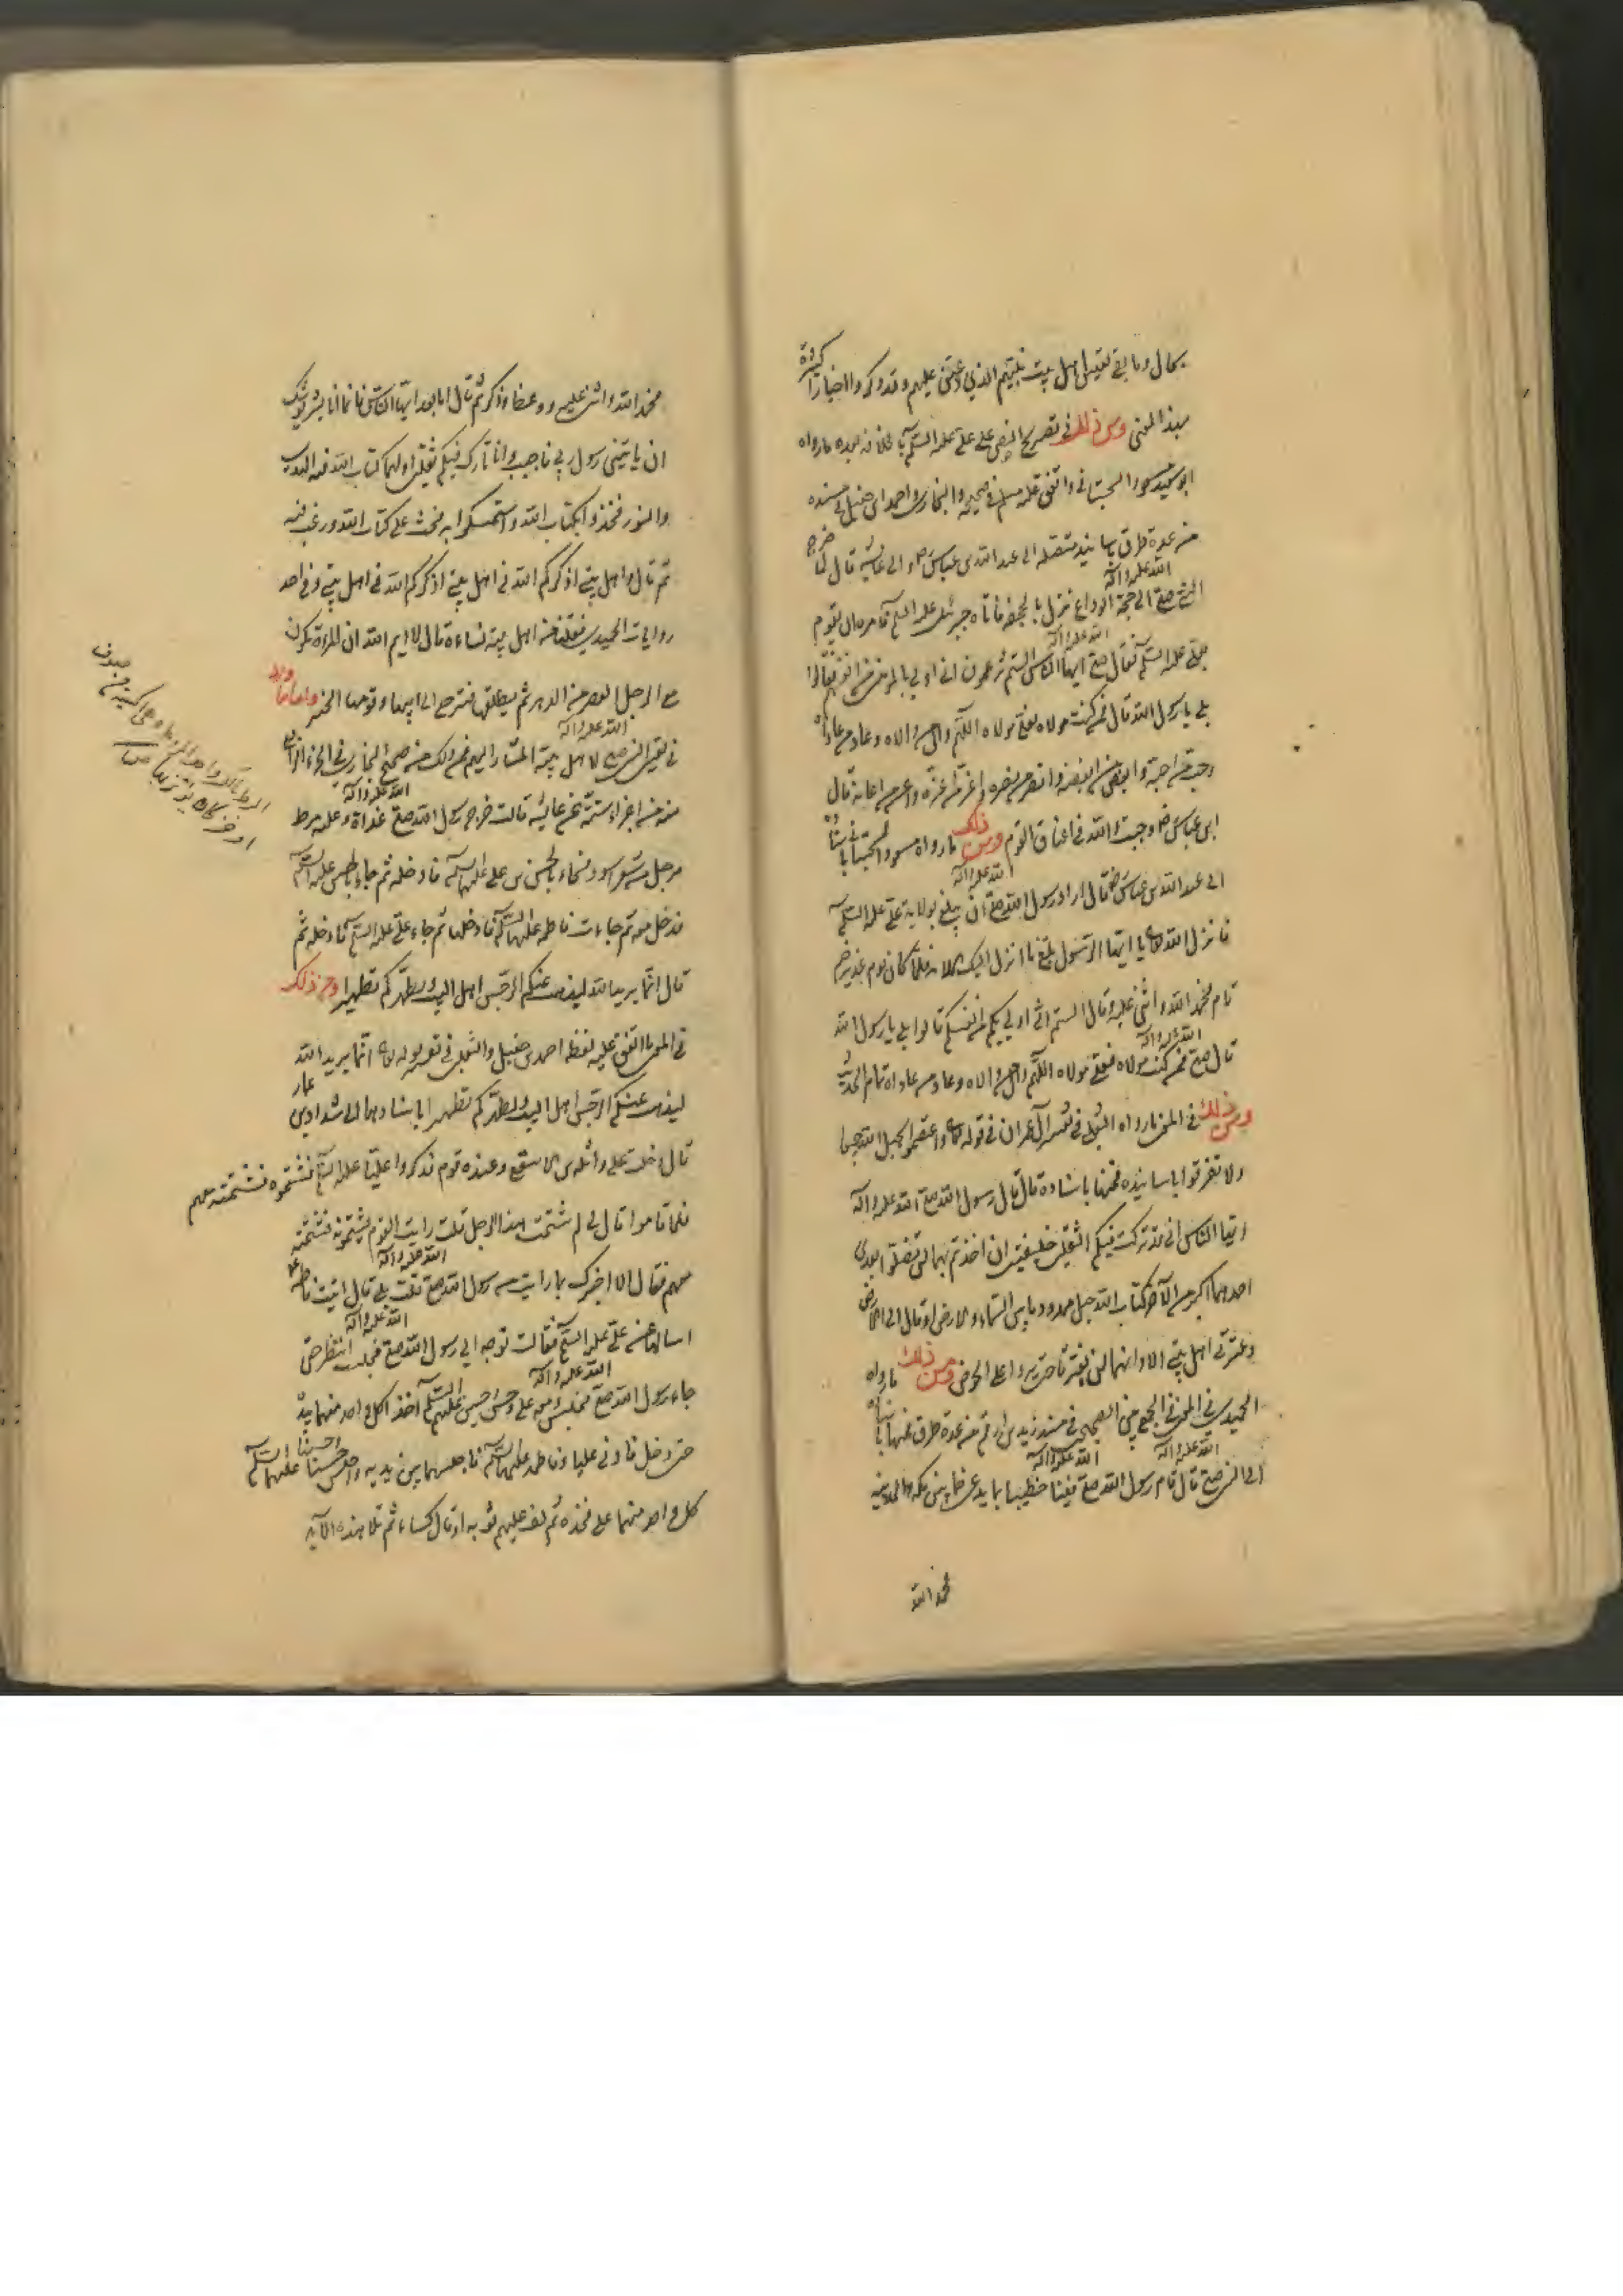 بحال وما بقي تعيين اهل بيت نبيهم الذي وعتى عليهم وقد ذكروا اخبارا كثيرة
بهذا المعنى ومن ذلك في تصريح النص على علي عليه السلم بالخلافة بعده ما رواه
ابو سعيد مسعود السجستاني واتفق عليه مسلم في صحيحه والبخاري واحمد بن حنبل في مسنده
من عدة طرق باسانيد متصلة الى عبد الله بن عباس رض والى عايشة قال لما خرج
النبي صلى الله عليه واله الى حجة الوداع نزل بالجحفة فاتاه جبرئيل عليه السلم فامره ان يقوم
بعلي عليه السلم فقال صلى الله عليه واله ايها الناس الستم تزعمون اني اولى بالمؤمنين من انفسهم قالوا
بلى يا رسول الله قال فمن كنت مولاه فعلي مولاه اللهم وال من والاه وعاد من عاداه
واحب من احبه وابغض من ابغضه وانصر من نصره واعز من اعزه واعن من اعانه قال
ابن عباس رض وجبت والله في اعناق القوم ومن ذلك ما رواه مسعود السجستاني باسناده
الى عبد الله بن عباس رض قال اراد رسول الله صلى الله عليه واله ان يبلغ بولاية علي عليه السلم
فانزل الله تعا يا ايها الرسول بلغ ما انزل اليك الاية فلما كان يوم غدير خم
قام فحمد الله واثنى عليه وقال الستم اني اولى بكم من انفسكم قالوا بلى يا رسول الله
قال صلى الله عليه واله فمن كنت مولاه فعلي مولاه اللهم وال من والاه وعاد من عاداه تمام الحديث
ومن ذلك في المعنى ما رواه الثعلبي في تفسير آل عمران في قوله تعا واعتصموا بحبل الله جميعا
ولا تفرقوا باسانيده فمنها باسناده قال قال رسول الله صلى الله عليه واله
ايها الناس اني قد تركت فيكم الثقلين خليفتين ان اخذتم بهما لن تضلوا بعدي
احدهما اكبر من الآخر كتاب الله حبل ممدود ما بين السماء والارض او قال الى الارض
وعترتي اهل بيتي الا وانهما لن يفترقا حتى يردا على الحوض ومن ذلك ما رواه
الحميدي في المعنى في الجمع بين الصحيحين في مسند زيد بن ارقم من عدة طرق فمنها باسناده
الى النبي صلى الله عليه واله قال قام رسول الله صلى الله عليه واله فينا خطيبا بماء يدعى خما بين مكة والمدينة
فحمد الله
فحمد الله واثنى عليه ووعظ وذكر ثم قال اما بعد ايها الناس فانما انا بشر يوشك
ان ياتيني رسول ربي فاجيب وانا تارك فيكم ثقلين اولهما كتاب الله فيه الهدى
والنور فخذوا بكتاب الله واستمسكوا به فحث على كتاب الله ورغب فيه
ثم قال واهل بيتي اذكركم الله في اهل بيتي اذكركم الله في اهل بيتي وفي احد
روايات الحميدي فقلنا من اهل بيته نساءه قال لا ايم الله ان المراة تكون
مع الرجل العصر من الدهر ثم يطلقها فترجع الى ابيها وقومها الخبر واما ما ورد
في تعيين النبي صلى الله عليه واله لاهل بيته المشار اليهم فمن ذلك من صحيح البخاري في الجزء الرابع
منه من اجزاء ستة عن عايشة قالت خرج رسول الله صلى الله عليه واله غداة وعليه مرط
مرجل من شعر اسود فجاء الحسن بن علي عليهما السلم فادخله ثم جاء الحسين عليه السلم
فدخل معه ثم جاءت فاطمة عليها السلم فادخلها ثم جاء علي عليه السلم فادخله ثم
قال انما يريد الله ليذهب عنكم الرجس اهل البيت ويطهركم تطهيرا ومن ذلك
في المعنى ما اتفق عليه لفظه احمد بن حنبل والثعلبي في تفسير قوله تعا انما يريد الله
ليذهب عنكم الرجس اهل البيت ويطهركم تطهيرا باسنادهما الى شداد بن عمار
قال دخلت على واثلة بن الاسقع وعنده قوم فذكروا عليا عليه السلم فشتموه فشتمته معهم
فلما قاموا قال لي لم شتمت هذا الرجل قلت رايت القوم يشتمونه فشتمته
معهم فقال الا اخبرك بما رايت من رسول الله صلى الله عليه واله قلت بلى قال اتيت فاطمة ع
اسالها عن علي عليه السلم فقالت توجه الى رسول الله صلى الله عليه واله فجلست انتظر حتى
جاء رسول الله صلى الله عليه واله فجلس ومعه علي وحسن وحسين عليهم السلم آخذا كل واحد منهما بيده
حتى دخل فادنى عليا وفاطمة عليهما السلم فاجلسهما بين يديه واجلس حسنا وحسينا عليهما السلم
كل واحد منهما على فخذه ثم لف عليهم ثوبه او قال كساء ثم تلا هذه الآية
المرط بالكسر واحد المروط وهي اكسية من صوف
او خز كان يؤتزر بها صحاح